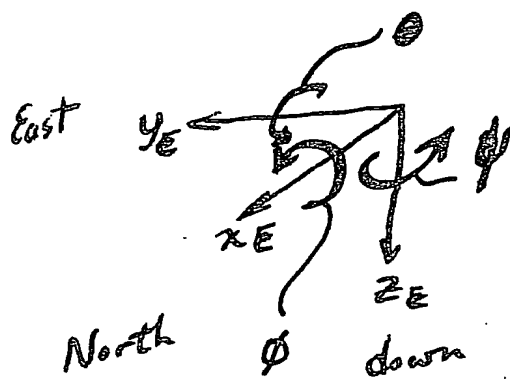 θ
East y_E ψ
x_E
z_E
North φ down